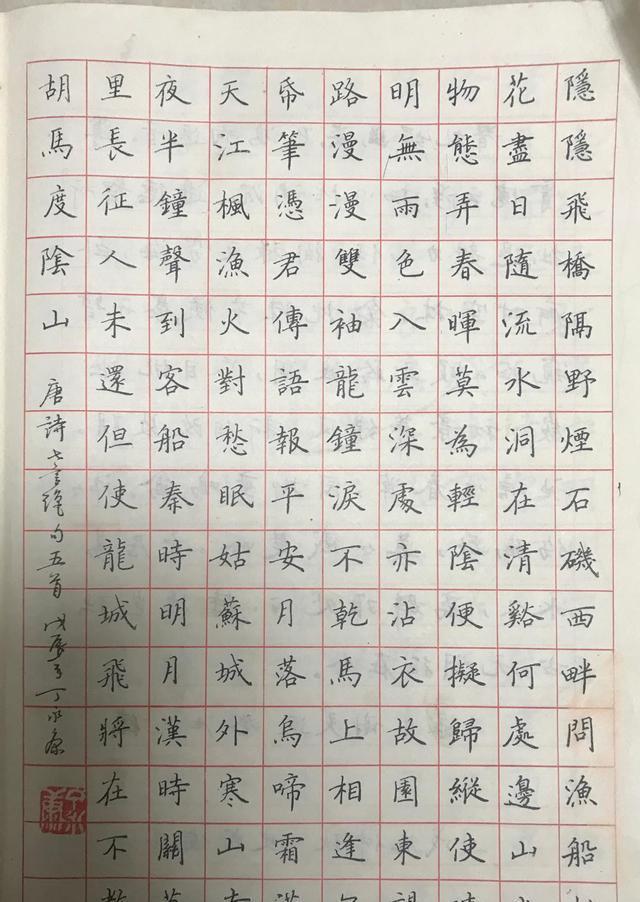 隱隱飛橋隔野煙石磯西畔問漁船
花盡日隨流水洞在清谿何處邊山
物態弄春暉莫為輕陰便擬歸縱使
明無雨色入雲深處亦沾衣故園東望
路漫漫雙袖龍鐘淚不乾馬上相逢
帋筆憑君傳語報平安月落烏啼霜滿
天江楓漁火對愁眠姑蘇城外寒山
夜半鐘聲到客船秦時明月漢時關
里長征人未還但使龍城飛將在不教
胡馬度陰山
唐詩七言絕句五首 戊辰 丁永